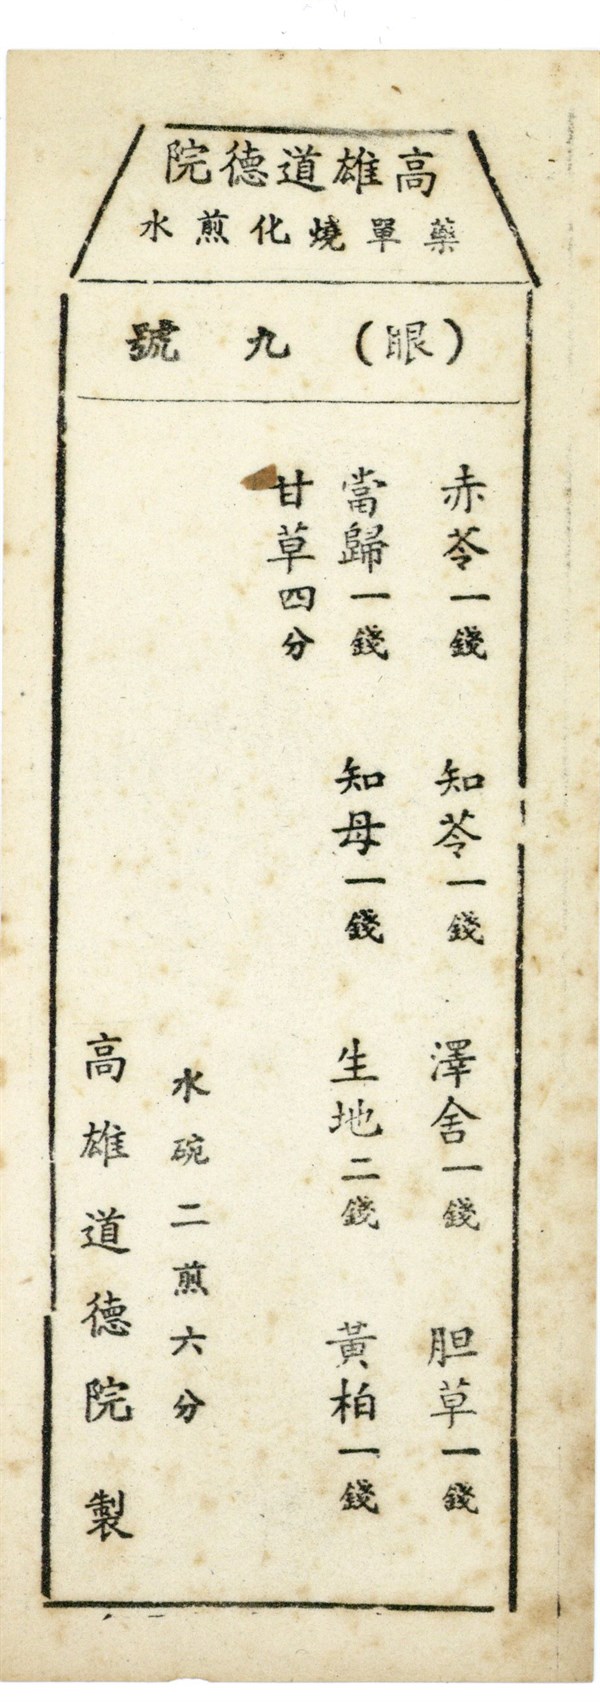 高雄道德院
藥單燒化煎水
（眼）九號
赤苓一錢 知苓一錢 澤舍一錢 胆草一錢
當歸一錢 知母一錢 生地二錢 黃柏一錢
甘草四分
水碗二煎六分
高雄道德院製